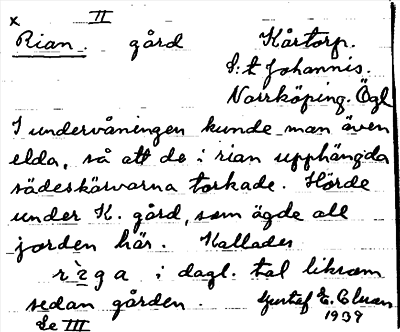 x II
Rian. gård Kårtorp.
S:t Johannis.
Norrköping. Ögl
I undervåningen kunde man även
elda, så att de i rian upphängda
sädeskärvarna torkade. Hörde
under K. gård, som ägde all
jorden här. Kallades
rìga i dagl. tal liksom
sedan gården. Gustaf E. Clman
Se III 1939